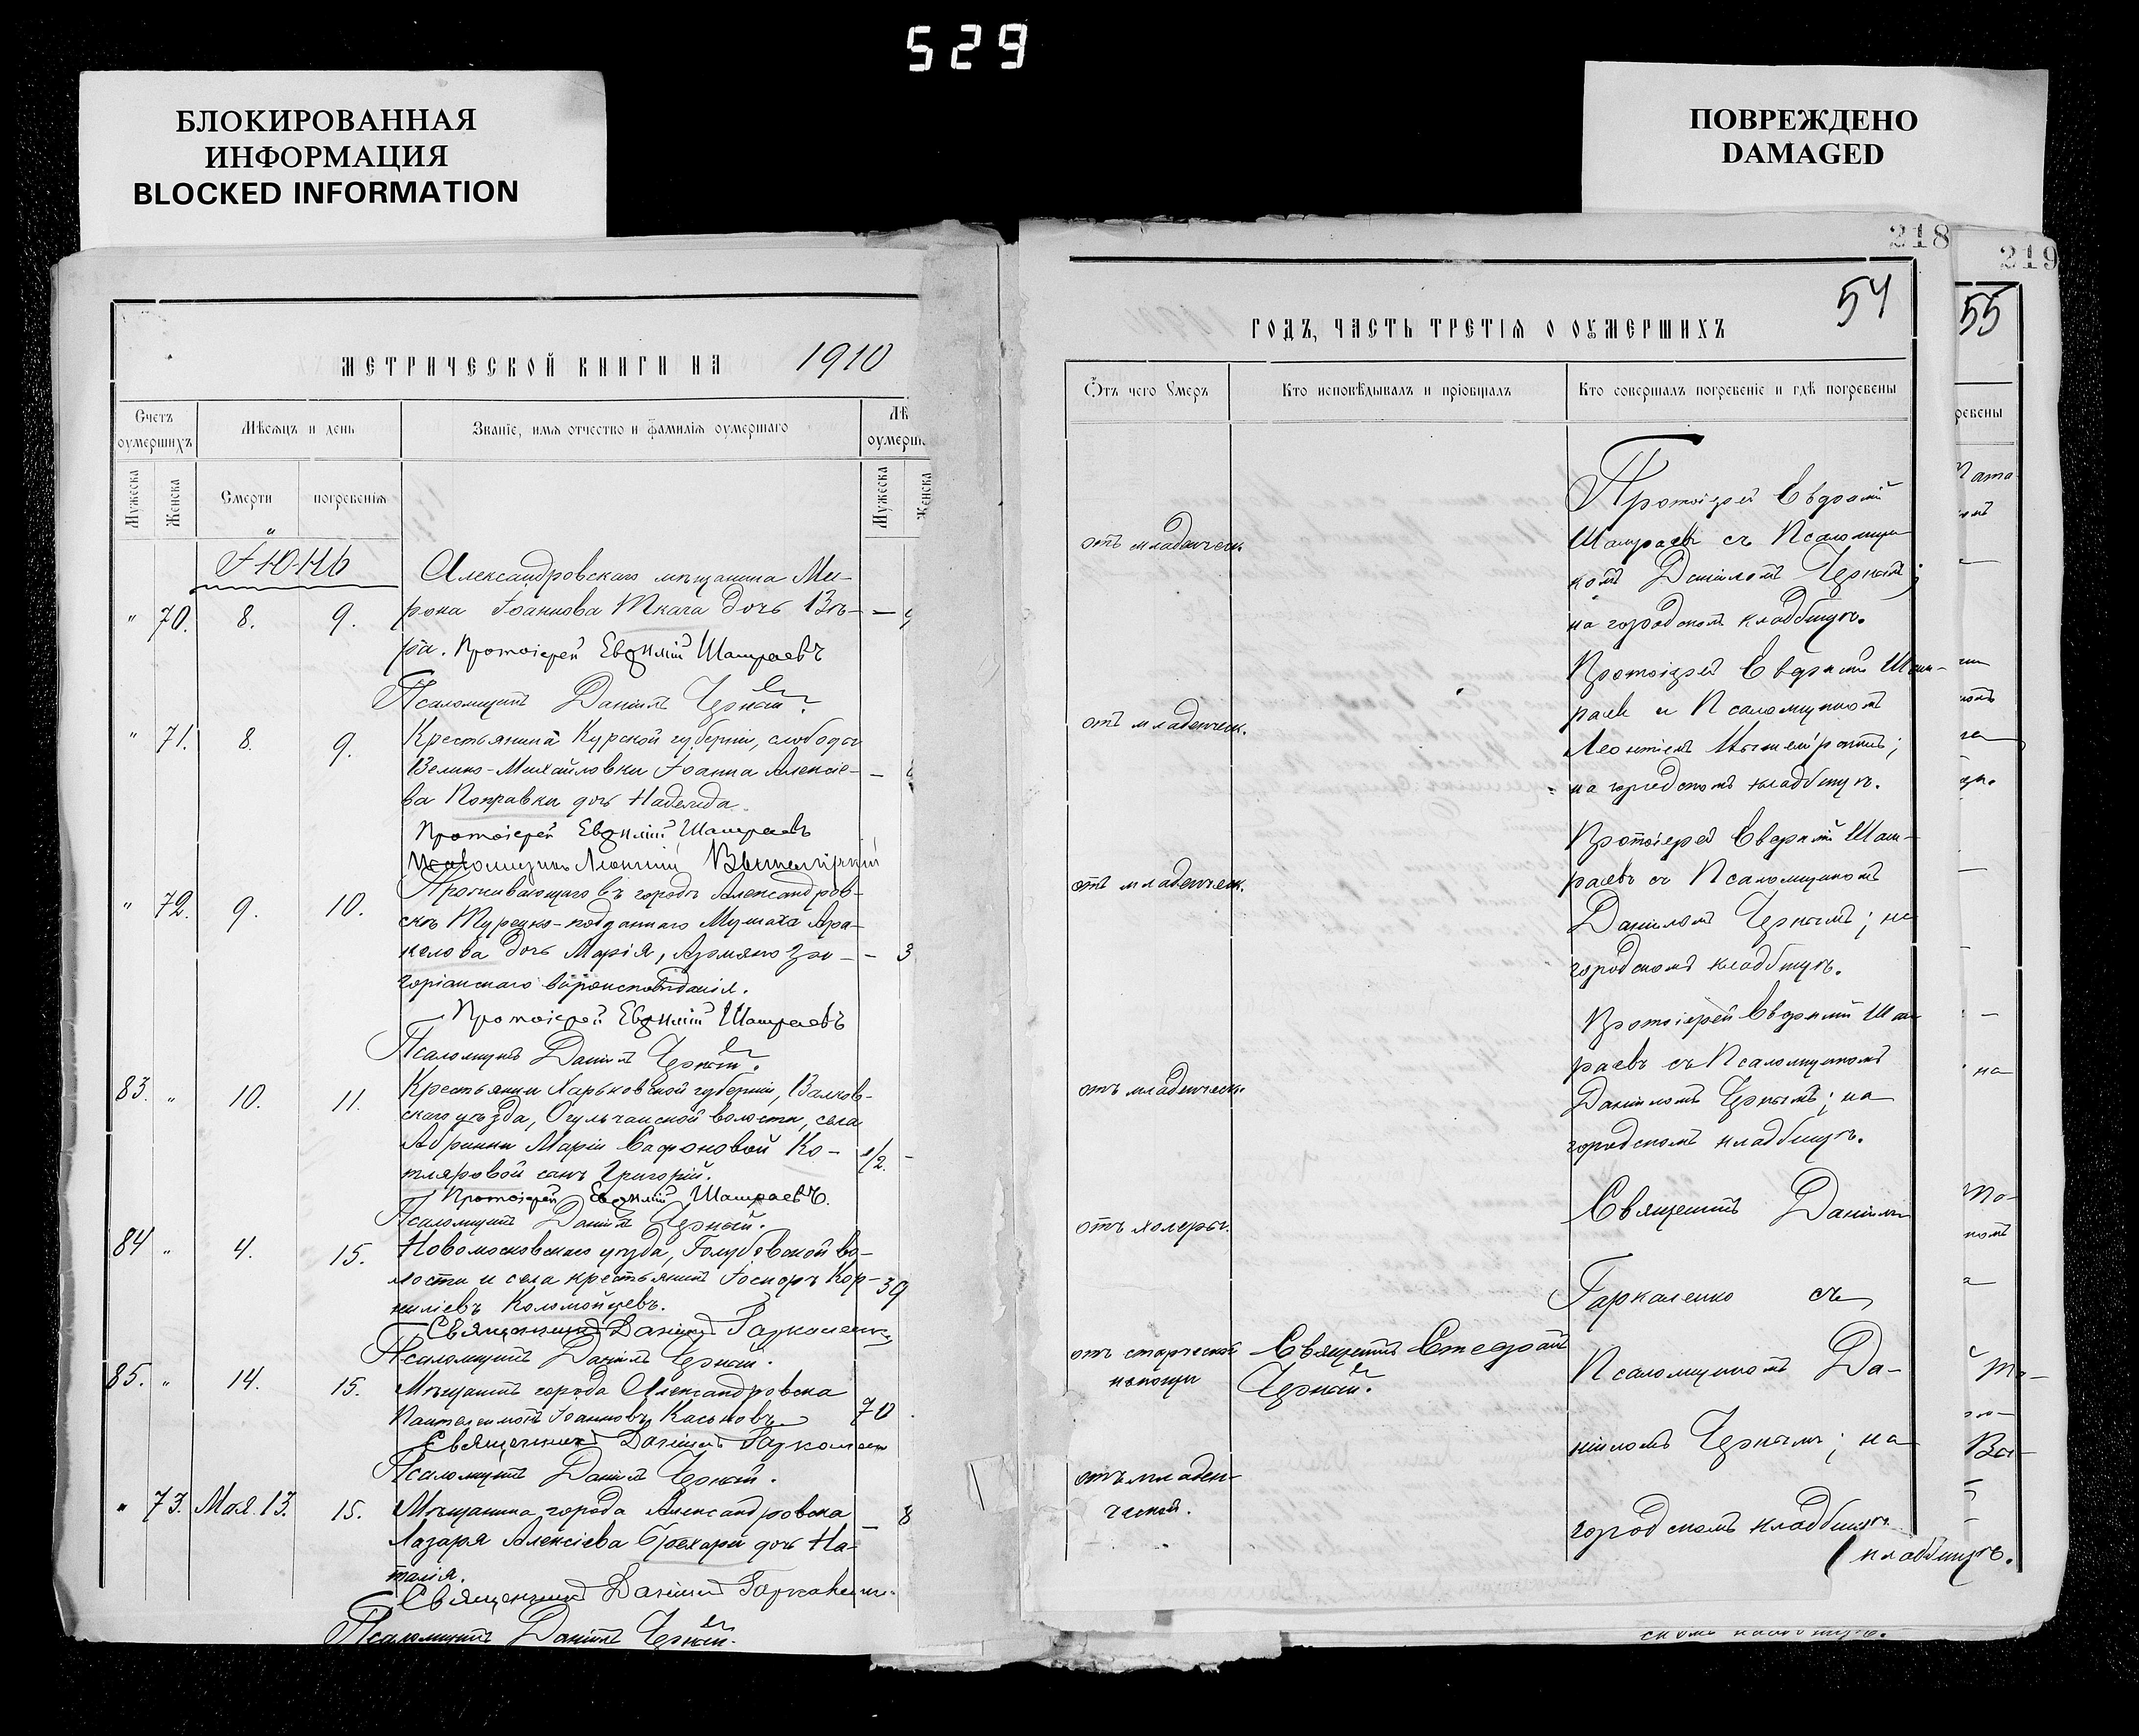 529
БЛОКИРОВАННАЯ
ИНФОРМАЦИЯ
BLOCKED INFORMATION
ПОВРЕЖДЕНО
DAMAGED
МЕТРИЧЕСКОЙ КНИГИ НА 1910
Счетъ оумершихъ
Мѣсяцъ и день
Званіе, имя отчество и фамилія оумершаго
Лѣ
оумерш
Мужеска
Женска
Смерти
погребенія
Мужеска
Женска
Іюнь
Александровскаго мѣщанина Ми-
" 70. 8. 9. рона Іоаннова Ткача дочь Вѣ- —
ра. Протоіерей Евѳимій Шамраевъ
Псаломщикъ Даніилъ Черный.
" 71. 8. 9. Крестьянина Курской губерніи, слободы
Велико-Михайловки Іоанна Алексіе- —
ва Поправки дочь Надежда.
Протоіерей Евѳимій Шамраевъ
Псаломщикъ Леонтій
" 72. 9. 10. Проживающаго въ городѣ Александров-
скѣ Турецко-подданнаго Мушаха Ара-
келова дочь Марія, Армяно Гри- — 3
горіанскаго вѣроисповѣданія.
Протоіерей Евѳимій Шамраевъ
Псаломщикъ Даніилъ Черный.
83. " 10. 11. Крестьянки Харьковской губерніи, Валков-
скаго уѣзда, Огульчанской волости, села
Маріи Сафоновой Ко- 1/2. -
тляровой сынъ Григорій.
Протоіерей Евѳимій Шамраевъ.
Псаломщикъ Даніилъ Черный.
84 " 4. 15. Новомосковскаго уѣзда, Голубовской во-
лости и села крестьянинъ Іосифъ Кор- 39
ниліевъ Коломойцевъ.
Священникъ Даніилъ Гаркаленко
Псаломщикъ Даніилъ Черный.
85. " 14. 15. Мѣщанинъ города Александровска
Пантелеимонъ Іоанновъ Касьновъ 70
Священникъ Даніилъ
Псаломщикъ Даніилъ Черный.
" 73. Мая 13. 15. Мѣщанина города Александровска
Лазаря Алексіева дочь На- — 8
талія.
Священникъ Даніилъ
Псаломщикъ Даніилъ Черный.
218
54
ГОДЪ, ЧАСТЬ ТРЕТІЯ О ОУМЕРШИХЪ
Отъ чего умеръ
Кто исповѣдывалъ и пріобщалъ
Кто совершалъ погребеніе и гдѣ погребены
отъ младенческ.
Протоіерей Евѳимій
Шамраевъ съ Псаломщи
комъ Даніиломъ Чернымъ;
на городскомъ кладбищѣ.
отъ младенческ.
Протоіерей Евѳимій Шам-
раевъ и Псаломщикомъ
Леонтіемъ
на городскомъ кладбищѣ.
отъ младенческ.
Протоіерей Евѳимій Шам-
раевъ съ Псаломщикомъ
Даніиломъ Чернымъ; на
городскомъ кладбищѣ.
отъ младенческ.
Протоіерей Евѳимій Шам
раевъ съ Псаломщикомъ
Даніиломъ Чернымъ; на
городскомъ кладбищѣ.
отъ холеры.
Священникъ Даніилъ
Гаркаленко съ
отъ старческой
немощи
Священникъ Стефанъ
Черный.
Псаломщикомъ Да-
ніиломъ Чернымъ; на
отъ младен-
ческой.
городскомъ кладбищѣ
кладбищѣ.
219
55
ребены
на